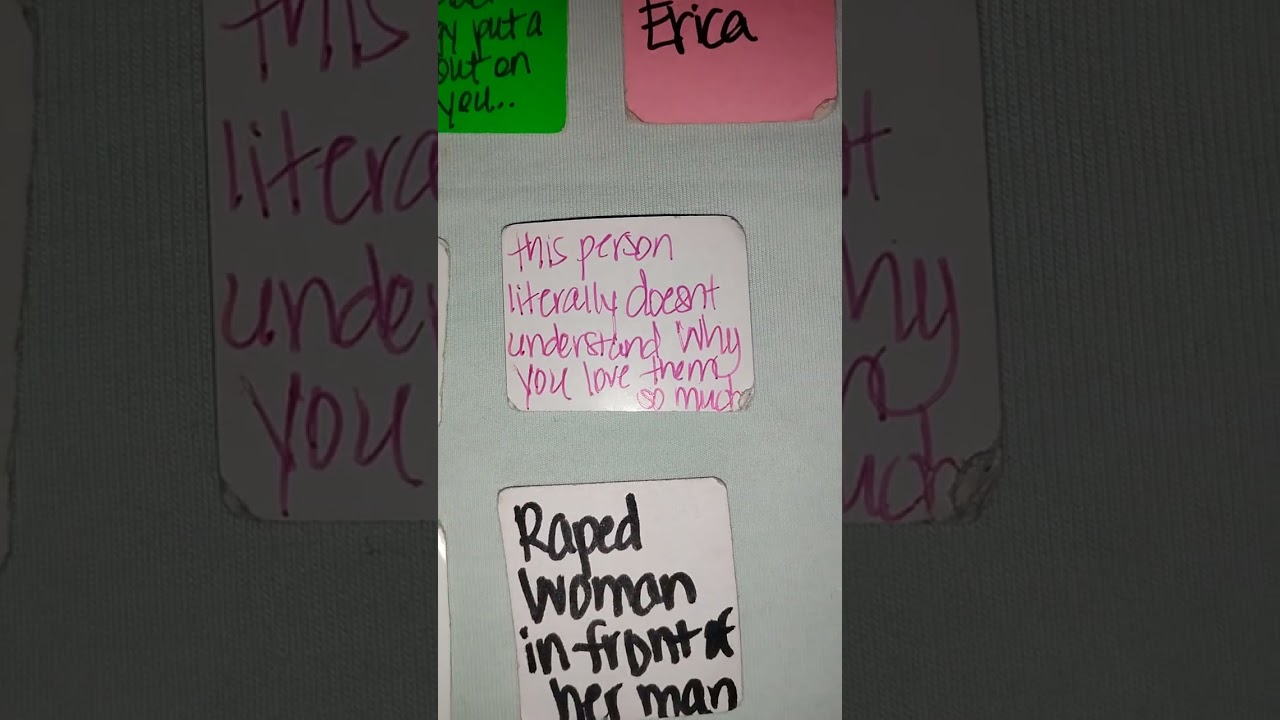 y put a
out on
you..
Erica
this person
literally doesnt
understand why
you love them
so much
Raped
Woman
in front of
her man